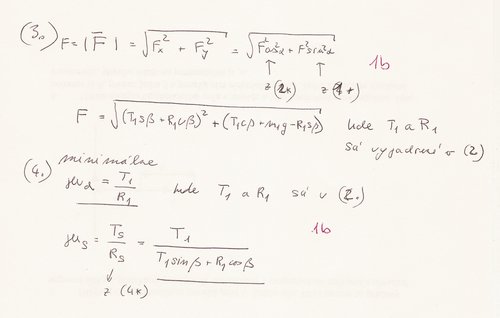 (3.) F = |F̅| = √(Fx² + Fy²) = √(F²cos²α + F²sin²α)
↑ ↑
z (2x) z (1x)
1b
F = √((T₁sβ + R₁cβ)² + (T₁cβ + m₁g - R₁sβ)) kde T₁ a R₁
sú vyjadrené v (2)
(4.) minimálne
μd = T₁/R₁ kde T₁ a R₁ sú v (2.)
1b
μs = Ts/Rs = T₁/(T₁sinβ + R₁cosβ)
↓
z (4x)